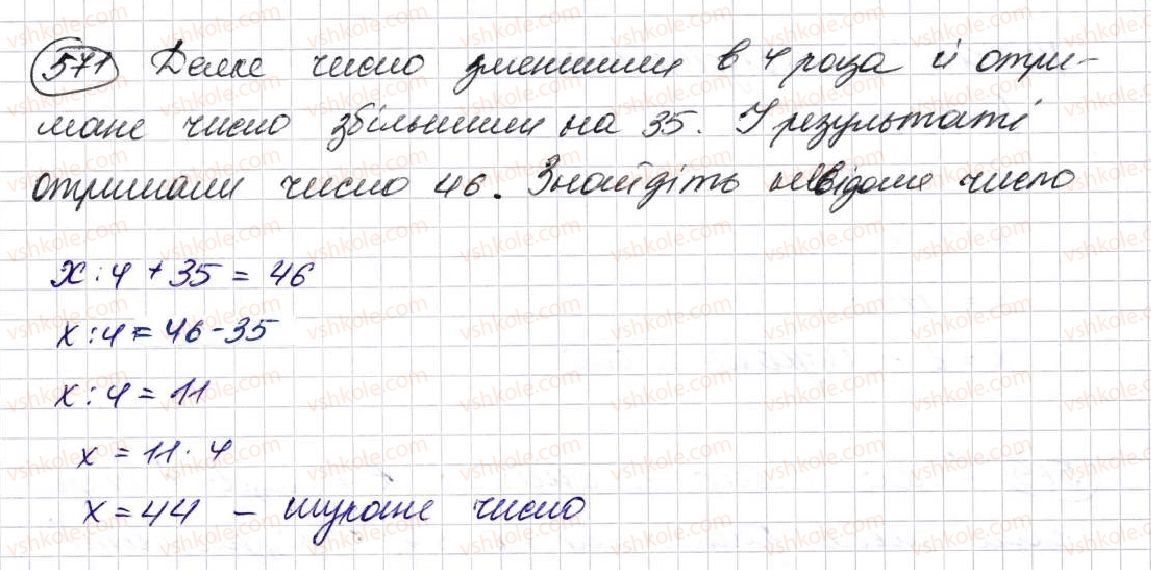 571 Деяке число зменшили в 4 раза й отри-
мане число збільшили на 35. У результаті
отримали число 46. Знайдіть невідоме число
x : 4 + 35 = 46
x : 4 = 46 - 35
x : 4 = 11
x = 11 · 4
x = 44 – шукане число